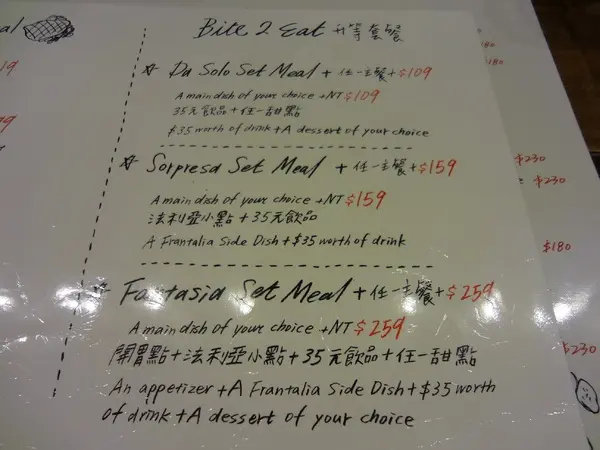 al
Bite 2 Eat 升等套餐
19
Da Solo Set Meal + 任一主餐 + $109
A main dish of your choice + NT $109
35元飲品 + 任一甜點
$35 worth of drink + A dessert of your choice
Sorpresa Set Meal + 任一主餐 + $159
A main dish of your choice + NT $159
法利亞小點 + 35元飲品
A Frantalia Side Dish + $35 worth of drink
Fantasia Set Meal + 任一主餐 + $259
A main dish of your choice + NT $259
開胃點 + 法利亞小點 + 35元飲品 + 任一甜點
An appetizer + A Frantalia Side Dish + $35 worth
of drink + A dessert of your choice
180
$230
$230
$180
$230